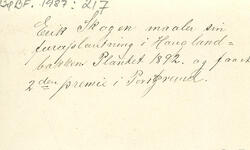 BF. 1987: 217
Erik Skogen maaler sin
furuplantning i Haugland-
bakken Plantet 1892. og faaet
2den premie i Porsgrund.